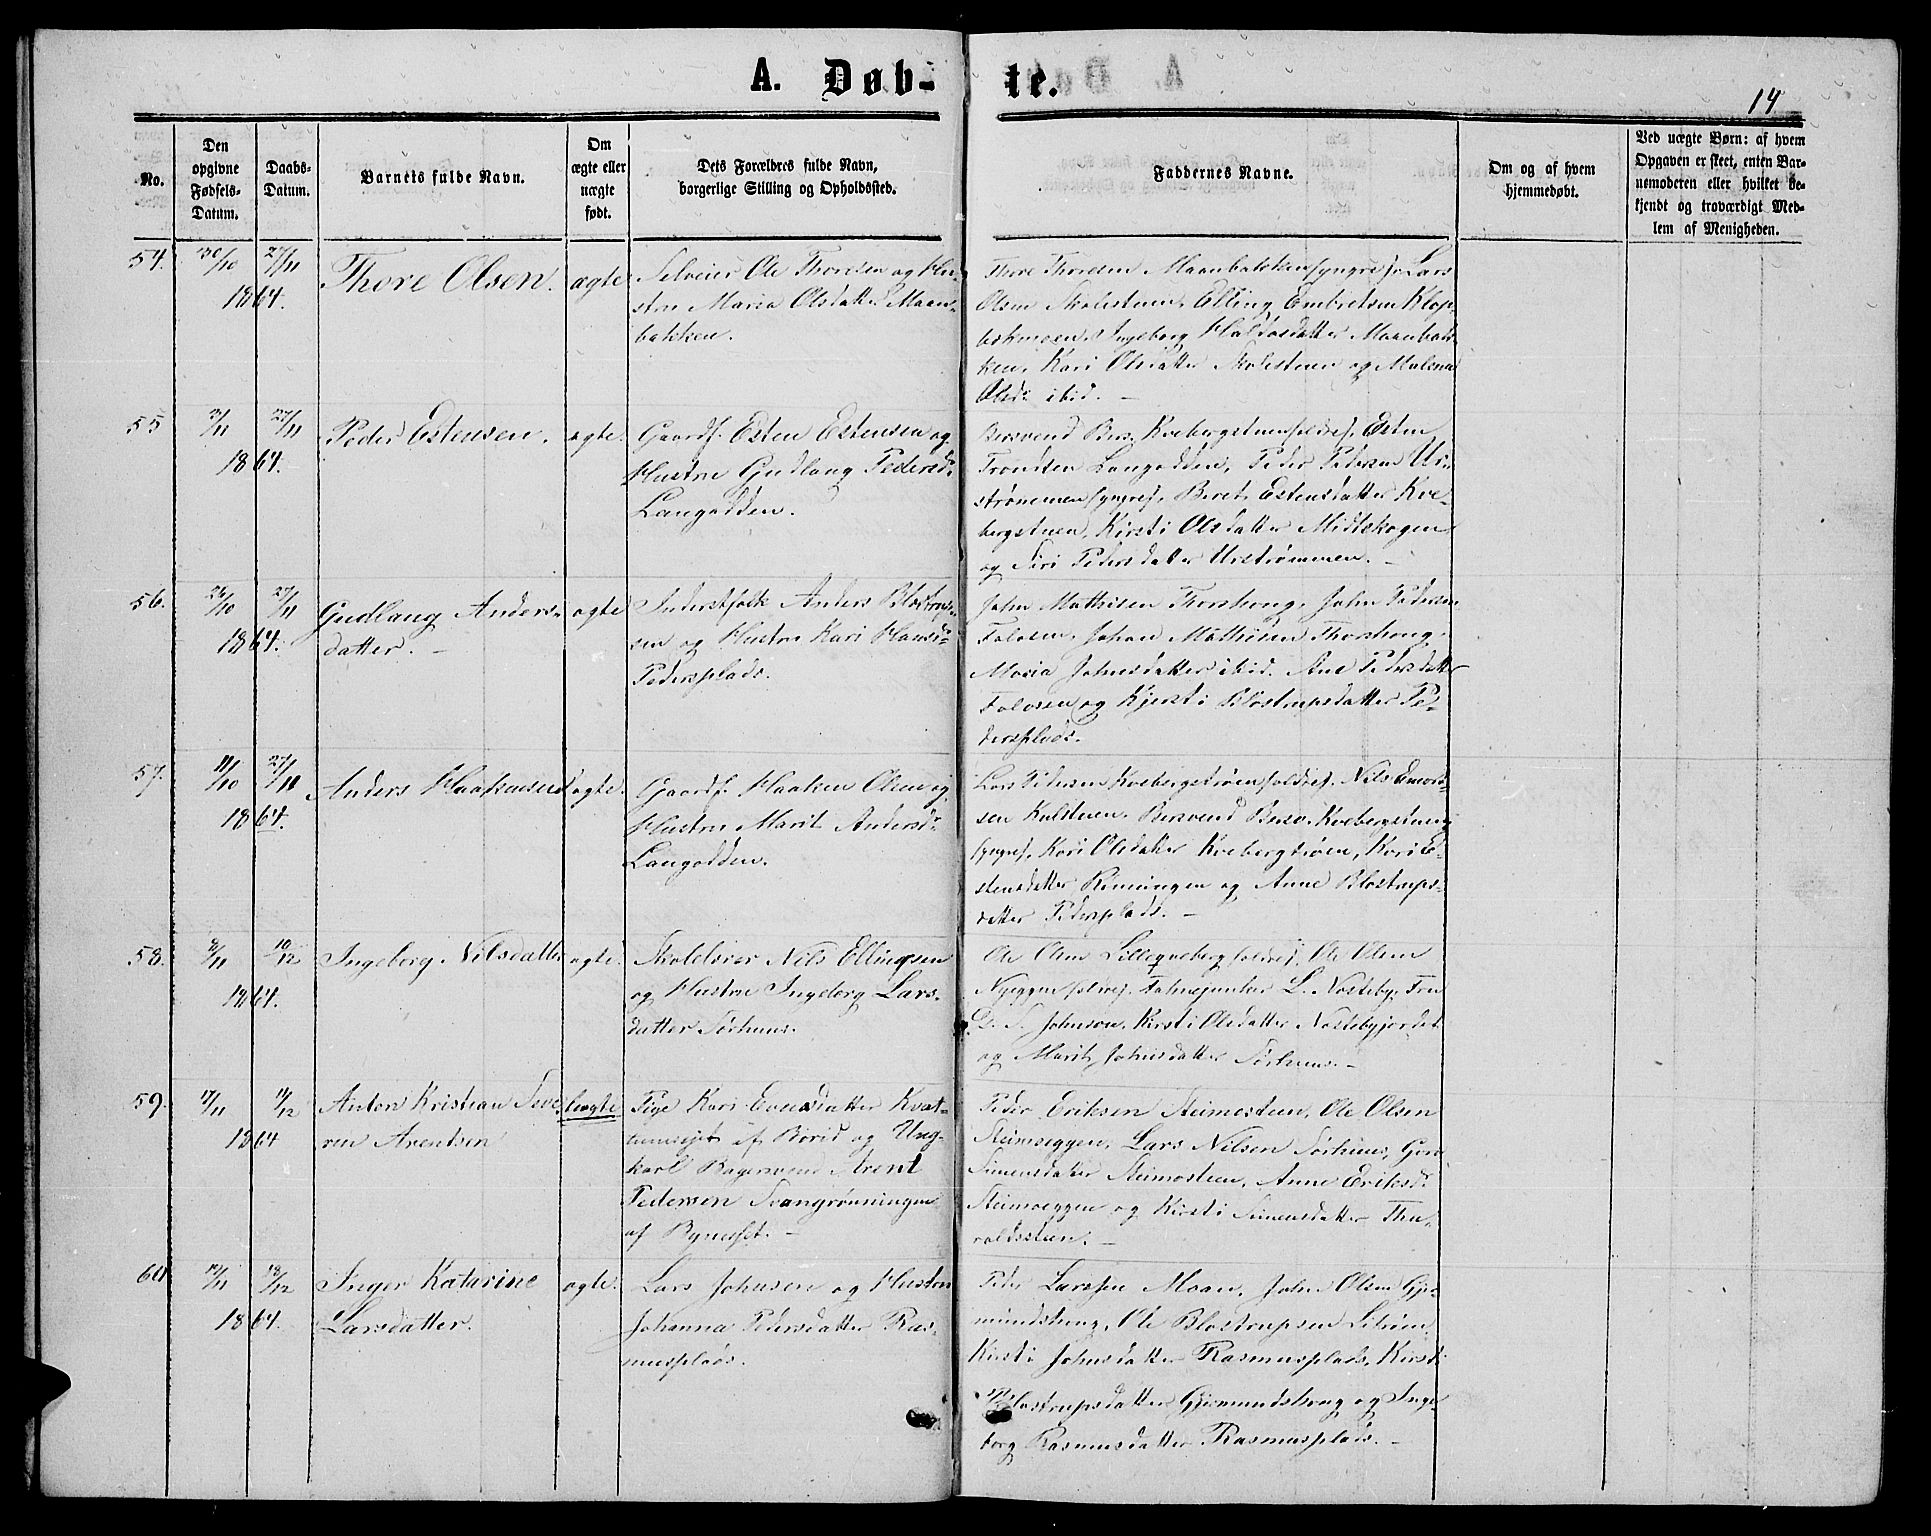 A. Døb-
te.
14
No.
Den
opgivne
Fødsels-
Datum.
Daabs-
Datum.
Barnets fulde Navn.
Om
ægte eller
uægte
født.
Dets Forældres fulde Navn,
borgerlige Stilling og Opholdssted.
Faddernes Navne.
Om og af hvem
hjemmedøbt.
Ved uægte Børn: af hvem
Opgaven er skeet, enten Bar-
nemoderen eller hvilket be-
kjendt og troværdigt Med-
lem af Menigheden.
54.
30/10
27/11
1864.
Thore Olsen.
ægte
Selveier Ole Thoresen og Hu-
stru Maria Olsdatter Maan-
bakken.
Thore Thoresen Maanbakken (yngre), Lars
Olsen Skolestuen, Elling Embretsen Klop-
bakmoen, Ingeborg Haldosdatter Maanbak-
ken, Kari Olsdatter Skolestuen og Malena
Olsdr ibid. –
55
3/11
27/11
1864.
Peder Estensen.
ægte.
Gaardf. Esten Estensen og
Hustru Gudlaug Pedersdr
Langodden.
Bersvend Bers. Kvebergstuen (ældre), Esten
Trondsen Langodden, Peder Pedersen Ur-
strømmen (yngre), Beret Estensdatter Kve-
bergstuen, Kirsti Olsdatter Midtskogen
og Siri Pedersdatter Urstrømmen. –
56.
26/10
27/11
1864.
Gudlaug Anders-
datter. –
ægte
Inderstfolk Anders Blostrup-
sen og Hustru Kari Hansdr
Pedersplads.
John Mathisen Thorshoug, John Pedersen
Folosen, Johan Mathisen Thorshoug,
Maria Johnsdatter ibid. Ane Pedersdatter
Folosen og Kjersti Blostrupsdatter Pe-
dersplads.
57.
11/10
27/11
1864.
Anders Haakensen
ægte.
Gaardf. Haaken Olsen og
Hustru Marit Andersdr
Langodden.
Lars Pedersen Kvebergstrøen (ældre), Nils
sen Kulstuen, Bersvend Bersv. Kvebergstuen
(yngre), Kari Olsdatter Kvebergtrøen, Kari E-
stensdatter Rimingen og Anne Blostrups-
datter Pedersplads. –
58.
8/11
10/12
1864.
Ingeborg Nilsdatter
ægte.
Skolelærer Nils Ellingsen
og Hustru Ingeborg Lars-
datter Sørhuus.
Ole Olsen Lillequeberg (ældre), Ole Olsen
Nyeggen (ældre), Fahnejunker L. Nosteby, Fru
S. Johnson, Kirsti Olsdatter Nostebyjordet
og Marit Johnsdatter Sørhuus. –
59.
17/11
11/12
1864
Anton Kristian Seve-
rin Arentsen
uægte
Pige Kari Evensdatter
af og Ung-
karl Bagersvend Arent
Pedersen Svangrønningen
af Bynesset. –
Peder Eriksen Steimosteen, Ole Olsen
Steimoeggen, Lars Nilsen Sørhuus, Guru
Simensdatter Steimosteen, Anne Eriksdr
Steimoeggen og Kirsti Simensdatter Tho-
raldssteen. –
60
12/11
18/12
1864.
Inger Katarine
Larsdatter.
ægte.
Lars Johnsen og Hustru
Johanna Pedersdatter Ras-
musplads.
Peder Larssen Moan, John Olsen Gjer-
mundshoug, Ole Blostrupsen Lilrøen,
Kirsti Johnsdatter Rasmusplads, Kirsti
Blostrupsdatter Gjermundshoug og Inge-
borg Rasmusdatter Rasmusplads. –